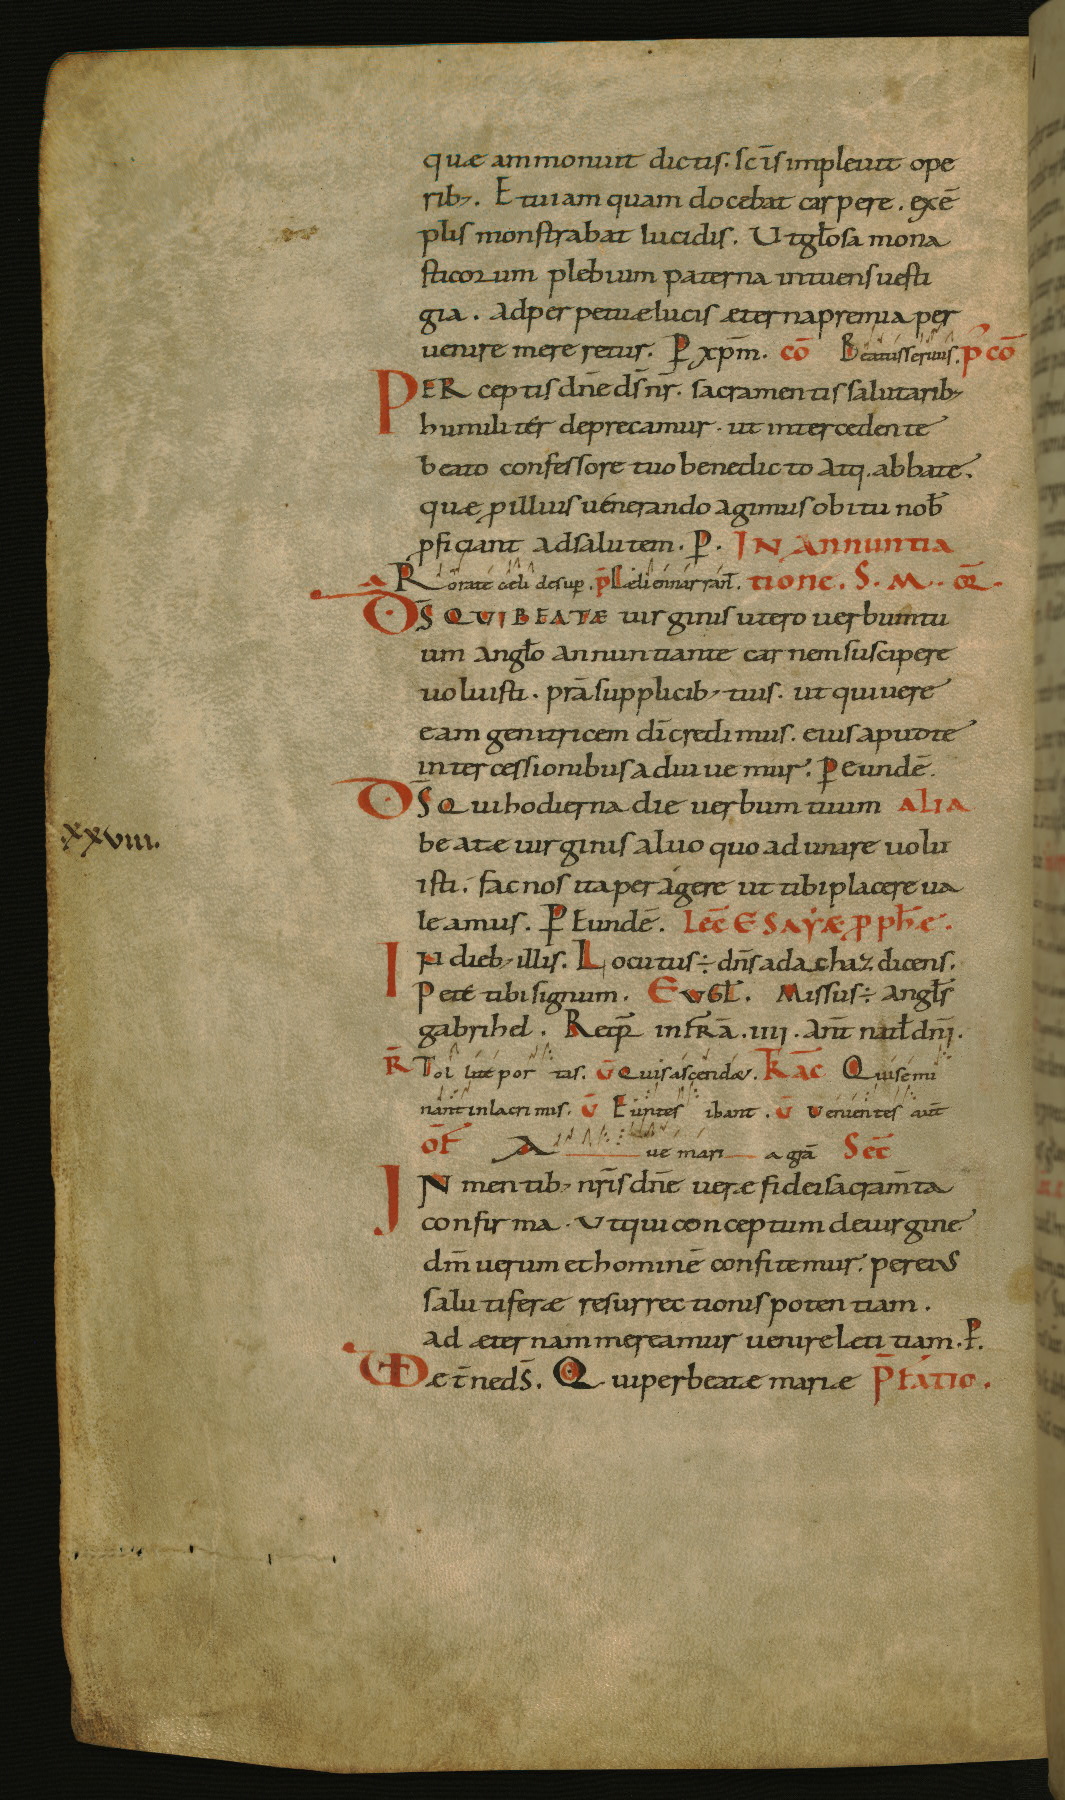 quæ ammonuit dictis. scīs impleuit ope
rib;. Et uiam quam docebat carpere. exē
plis monstrabat lucidis. Ut gl̄osa mona
sticorum plebium paterna intuens uesti
gia. ad perpetuæ lucis æterna premia per
uenire mereretur. P xp̄m. cō Beatus seruus. p̄ cō
PER ceptis dn̄e ds̄ nr̄. sacramentis salutarib;
humiliter deprecamur. ut intercedente
beato confessore tuo benedicto atq. abbate.
quæ p illius uenerando agimus obitu nob̄
pficiant ad salutem. P. IN Annuntia
Rorate celi desup. p̄ Celi enarran̄t. tione. S. M. or̄.
DS̄ QUI BEATÆ uirginis utero uerbum tu
um angl̄o annuntiante carnem suscipere
uoluisti. prā supplicib; tuis. ut qui uere
eam genitricem dī credimus. eius apud te
intercessionibus adiuuemur. P eundē.
DS̄ Qui hodierna die uerbum tuum alia
xxviii.
beatæ uirginis aluo quo adunire uolu
isti. fac nos ita peragere ut tibi placere ua
leamus. P Eundē. Lec̄ ESAYÆ p ph̄e.
IN dieb; illis. Locutus ÷ dn̄s ad achaz dicens.
Pete tibi signum. Eugl̄. Missus ÷ angl̄s
gabrihel. Reqr̄ infrā. iiii. ant̄ nat̄l dn̄i.
R̄ Tollite portas. v̄ Quis ascendæ. trāc Qui semi
nant in lacrimis. v̄ Euntes ibant. v̄ Uenientes aut̄
of̄ Aue maria grā Sec̄
IN mentib; nr̄is dn̄e ueræ fidei sacram̄ta
confirma. Ut qui conceptum de uirgine
dm̄ uerum et hominē confitemur. per eius
salutiferæ resurrectionis potentiam.
ad æternam mereamur uenire letitiam. P.
UD æt̄ne ds̄. Qui per beatæ mariæ P̄fatio.